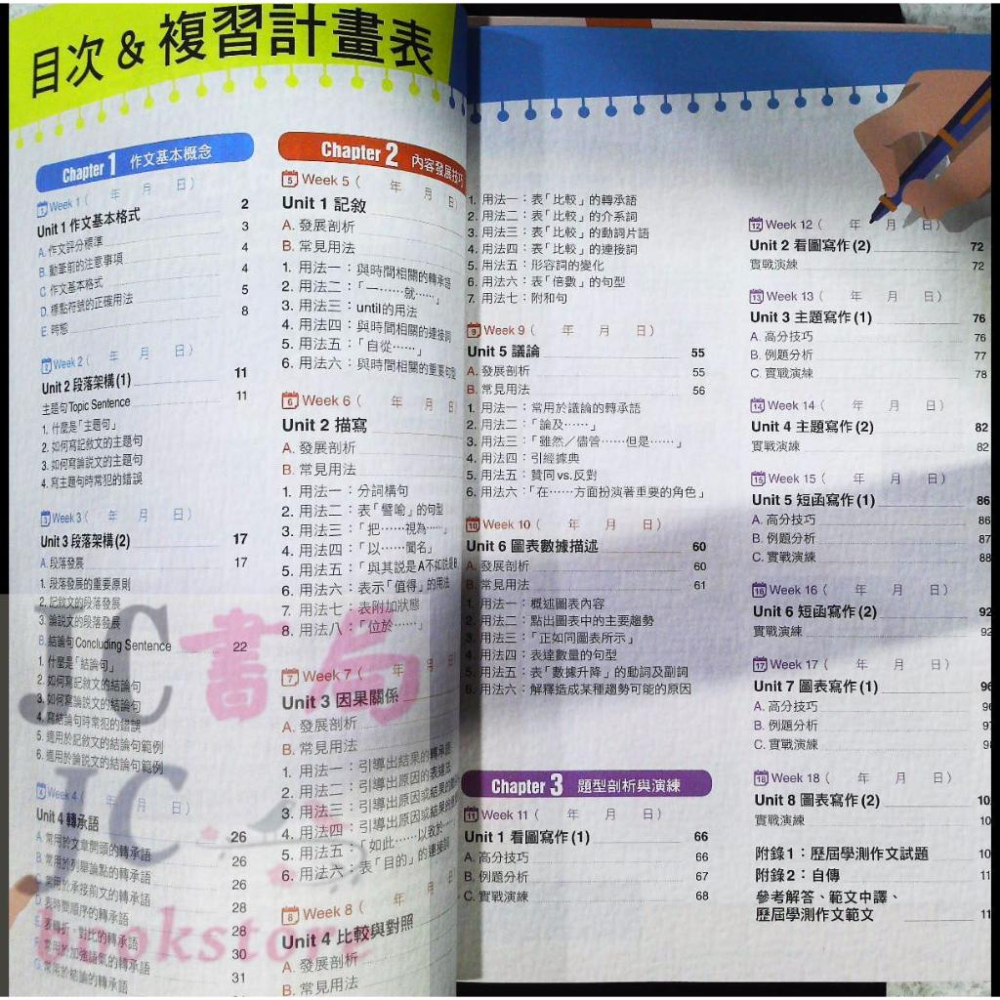 目次 & 複習計畫表
Chapter 1 作文基本概念
1 Week 1 ( 年 月 日)
Unit 1 作文基本格式 2
A. 作文評分標準 3
B. 動筆前的注意事項 4
C. 作文基本格式 4
D. 標點符號的正確用法 5
E. 時態 8
2 Week 2 ( 年 月 日)
Unit 2 段落架構 (1) 11
主題句 Topic Sentence 11
1. 什麼是「主題句」
2. 如何寫記敘文的主題句
3. 如何寫論說文的主題句
4. 寫主題句時常犯的錯誤
3 Week 3 ( 年 月 日)
Unit 3 段落架構 (2) 17
A. 段落發展 17
1. 段落發展的重要原則
2. 記敘文的段落發展
3. 論說文的段落發展
B. 結論句 Concluding Sentence 22
1. 什麼是「結論句」
2. 如何寫記敘文的結論句
3. 如何寫論說文的結論句
4. 寫結論句時常犯的錯誤
5. 適用於記敘文的結論句範例
6. 適用於論說文的結論句範例
4 Week 4 ( 年 月 日)
Unit 4 轉承語 26
A. 常用於文章開頭的轉承語 26
B. 常用於列舉論點的轉承語 26
C. 常用於承接前文的轉承語 28
D. 表時間順序的轉承語 28
E. 表轉折、對比的轉承語 30
F. 常用於加強語氣的轉承語 31
G. 常用於結論的轉承語
Chapter 2 內容發展技巧
5 Week 5 ( 年 月 日)
Unit 1 記敘
A. 發展剖析
B. 常見用法
1. 用法一：與時間相關的轉承語
2. 用法二：「一……就……」
3. 用法三：until的用法
4. 用法四：與時間相關的連接詞
5. 用法五：「自從……」
6. 用法六：與時間相關的重要句型
6 Week 6 ( 年 月 日)
Unit 2 描寫
A. 發展剖析
B. 常見用法
1. 用法一：分詞構句
2. 用法二：表「譬喻」的句型
3. 用法三：「把……視為……」
4. 用法四：「以……聞名」
5. 用法五：「與其說是A不如說是B
6. 用法六：表示「值得」的用法
7. 用法七：表附加狀態
8. 用法八：「位於……」
7 Week 7 ( 年 月
Unit 3 因果關係
A. 發展剖析
B. 常見用法
1. 用法一：引導出結果的轉承語
2. 用法二：引導出原因的表達法
3. 用法三：引導出原因或結果的
4. 用法四：引導出原因或結果的
5. 用法五：「如此……以致於
6. 用法六：表「目的」的連接詞
8 Week 8 ( 年 月 日
Unit 4 比較與對照
A. 發展剖析
B. 常見用法
1. 用法一：表「比較」的轉承語
2. 用法二：表「比較」的介系詞
3. 用法三：表「比較」的動詞片語
4. 用法四：表「比較」的連接詞
5. 用法五：形容詞的變化
6. 用法六：表「倍數」的句型
7. 用法七：附和句
9 Week 9 ( 年 月 日)
Unit 5 議論 55
A. 發展剖析 55
B. 常見用法 56
1. 用法一：常用於議論的轉承語
2. 用法二：「論及……」
3. 用法三：「雖然／儘管……但是……」
4. 用法四：引經據典
5. 用法五：贊同 vs. 反對
6. 用法六：「在……方面扮演著重要的角色」
10 Week 10 ( 年 月 日)
Unit 6 圖表數據描述 60
A. 發展剖析 60
B. 常見用法 61
1. 用法一：概述圖表內容
2. 用法二：點出圖表中的主要趨勢
3. 用法三：「正如同圖表所示」
4. 用法四：表達數量的句型
5. 用法五：表「數據升降」的動詞及副詞
6. 用法六：解釋造成某種趨勢可能的原因
Chapter 3 題型剖析與演練
11 Week 11 ( 年 月 日)
Unit 1 看圖寫作 (1) 66
A. 高分技巧 66
B. 例題分析 67
C. 實戰演練 68
12 Week 12 ( 年 月 日)
Unit 2 看圖寫作 (2) 72
實戰演練 72
13 Week 13 ( 年 月 日)
Unit 3 主題寫作 (1) 76
A. 高分技巧 76
B. 例題分析 77
C. 實戰演練 78
14 Week 14 ( 年 月 日)
Unit 4 主題寫作 (2) 82
實戰演練 82
15 Week 15 ( 年 月 日)
Unit 5 短函寫作 (1) 86
A. 高分技巧 86
B. 例題分析 87
C. 實戰演練 88
16 Week 16 ( 年 月 日)
Unit 6 短函寫作 (2) 92
實戰演練 92
17 Week 17 ( 年 月 日)
Unit 7 圖表寫作 (1) 96
A. 高分技巧
B. 例題分析
C. 實戰演練
18 Week 18 ( 年 月 日)
Unit 8 圖表寫作 (2)
實戰演練
附錄1：歷屆學測作文試題
附錄2：自傳
參考解答、範文中譯、
歷屆學測作文範文
JC 書局
JC
bookstore